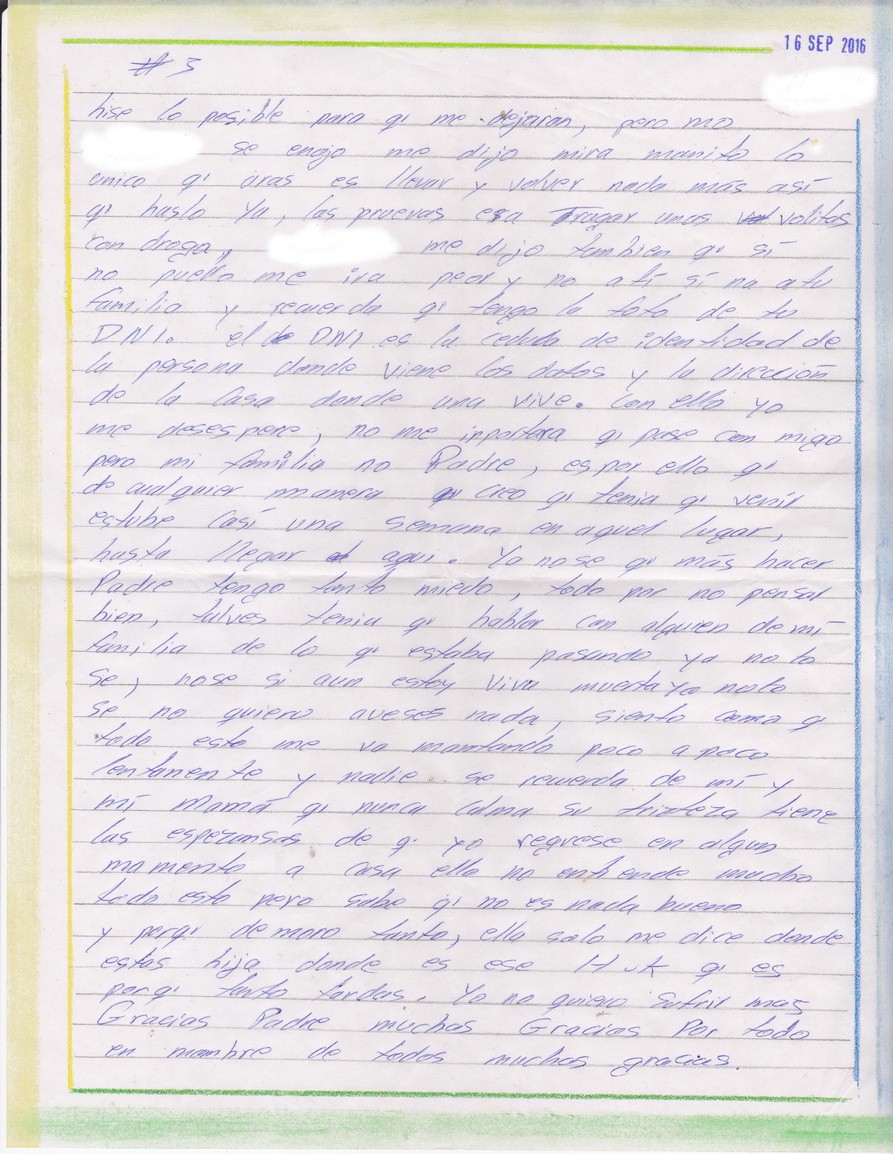 16 SEP 2016
# 3
hise lo posible para q' me dejaran, pero mo
se enojo me dijo mira manito lo
unico q' aras es llevar y volver nada más así
q' haslo ya, las pruevas era Tragar unas volitas
con droga, me dijo tambien q' sí
no puello me ira peor y no a tí sí na a tu
familia y recuerda q' tengo la foto de tu
DNI. el DNI es la cedula de identidad de
la persona donde viene los datos y la dirección
de la casa donde una vive. Con ello yo
me desespere, no me inportara q' pase con migo
pero mi familia no Padre, es por ello q'
de cualquier manera creo q' tenia q' venir
estube casí una semana en aquel lugar,
hasta llegar aqui. Ya no se q' más hacer
Padre tengo tanto miedo, todo por no pensar
bien, talves tenia q' hablar con alguien de mí
familia de lo q' estaba pasando ya no lo
se, nose si aun estoy viva muerta ya nolo
se no quiero aveses nada, siento como q'
todo esto me va mantando poco a poco
lentamente y nadie se recuerda de mí y
mí Mamá q' nunca calma su tristeza tiene
las esperansas de q' yo regrese en algun
momento a casa ella no entiende mucho
todo esto pero sabe q' no es nada bueno
y porq' demoro tanto, ella solo me dice donde
estas hija donde es ese H.K q' es
porq' tanto tardas. Yo no quiero sufrir mas
Gracias Padre muchas Gracias Por todo
en nombre de todos muchas gracias.